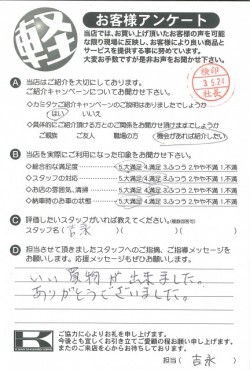 軽
お客様アンケート
当店では、お買い上げ頂いたお客様の声を可能
な限り現場に反映し、お客様により良い商品と
サービスを提供する事に努めています。
大変お手数ですが是非お声をお聞かせ下さい。
検印
3.5.24
社長
A 当店はご紹介を大切にしております。
ご紹介キャンペーンについてお聞かせ下さい。
・カミタケご紹介キャンペーンのご説明はありましたでしょうか
はい いいえ
・具体的にご紹介頂ける方とのご関係をお聞かせ頂けますでしょうか
ご親族 ご友人 職場の方 機会があれば紹介したい
B 当店を実際にご利用になった印象をお聞かせ下さい。
◇総合的な満足度 5.大満足 4.満足 3.ふつう 2.やや不満 1.不満
◇スタッフの対応 5.大満足 4.満足 3.ふつう 2.やや不満 1.不満
◇お店の雰囲気、清掃 5.大満足 4.満足 3.ふつう 2.やや不満 1.不満
◇納車時のお車の状態 5.大満足 4.満足 3.ふつう 2.やや不満 1.不満
C 評価したいスタッフがいれば教えてください。(複数回答可)
スタッフ名( 吉永 )( )( )
D 担当させて頂きましたスタッフへのご指摘、ご指導メッセージを
お願いします。応援メッセージもぜひお願いします。
いい買物が出来ました。
ありがとうございました。
ご協力に心よりお礼を申し上げます。
今後とも宜しくお引き立てご愛顧の程お願い申し上げます。
またのご来店を心からお待ちしております。
担当( 吉永 )